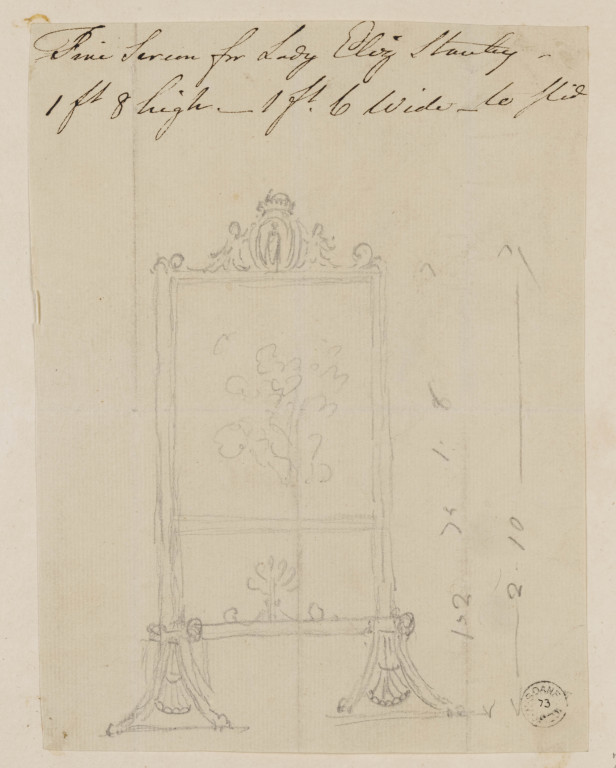 Fire Screen for Lady Eliz Stanley -
1 ft 8 high - 1 ft. 6 Wide - to slid
1. 8
1 - 2
2. 10
SOANE
73